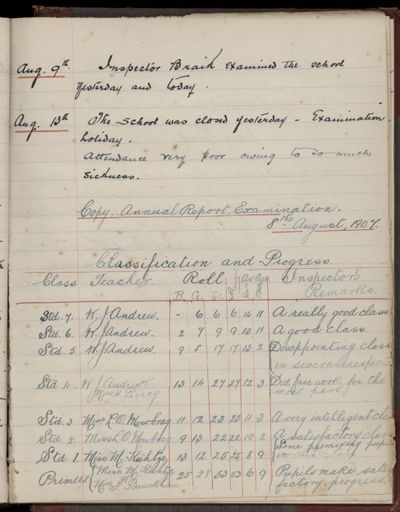 Aug. 9th. Inspector Braik examined the school
yesterday and today.
Aug. 13th The school was closed yesterday - Examination
holiday.
Attendance very poor owing to so much
sickness.
Copy, Annual Report, Examination.
8th August, 1907.
Classification and Progress.
Class Teacher Roll Inspector's
B. G. Remarks.
Std. 7. W. J. Andrew. - 6 6 6 14 11 A really good class.
Std. 6. W. J. Andrew. 2 7 9 9 13 11 A good class
Std. 5. W. J. Andrew. 9 8 17 17 13 2 Disappointing class
in several respects
Std. 4. W. J. Andrew 13 14 27 27 12 3 Did fair work for the
most part
Std. 3. Miss 11 12 23 23 11 3 A very intelligent class
Std. 2. Miss 9 13 22 22 10 2 A satisfactory class
Std. 1. Miss M. 13 12 25 25 8 9 Some promising pupils
in this class
Primers Miss M. 25 28 53 53 6 9 Pupils make satis
Miss factory progress.